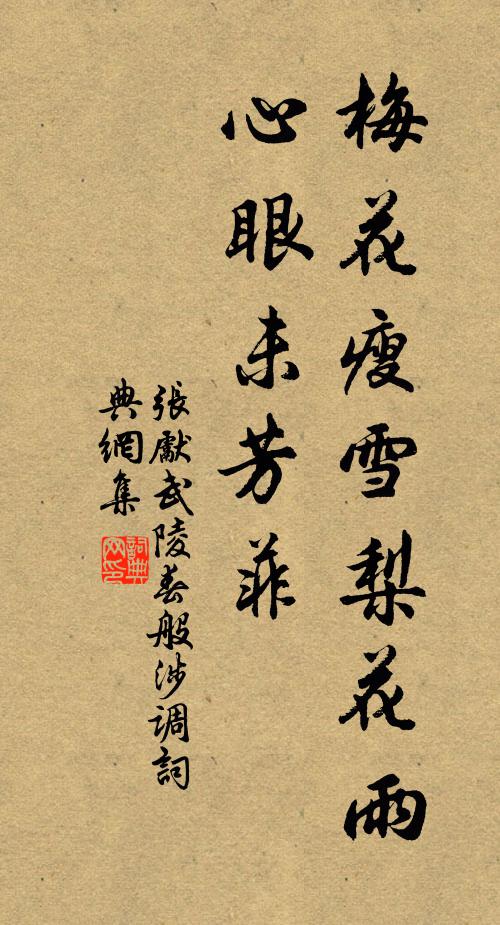 梅花瘦雪梨花雨
心眼未芳菲
張獻武陵春般涉调詞
典網集
詞典网印